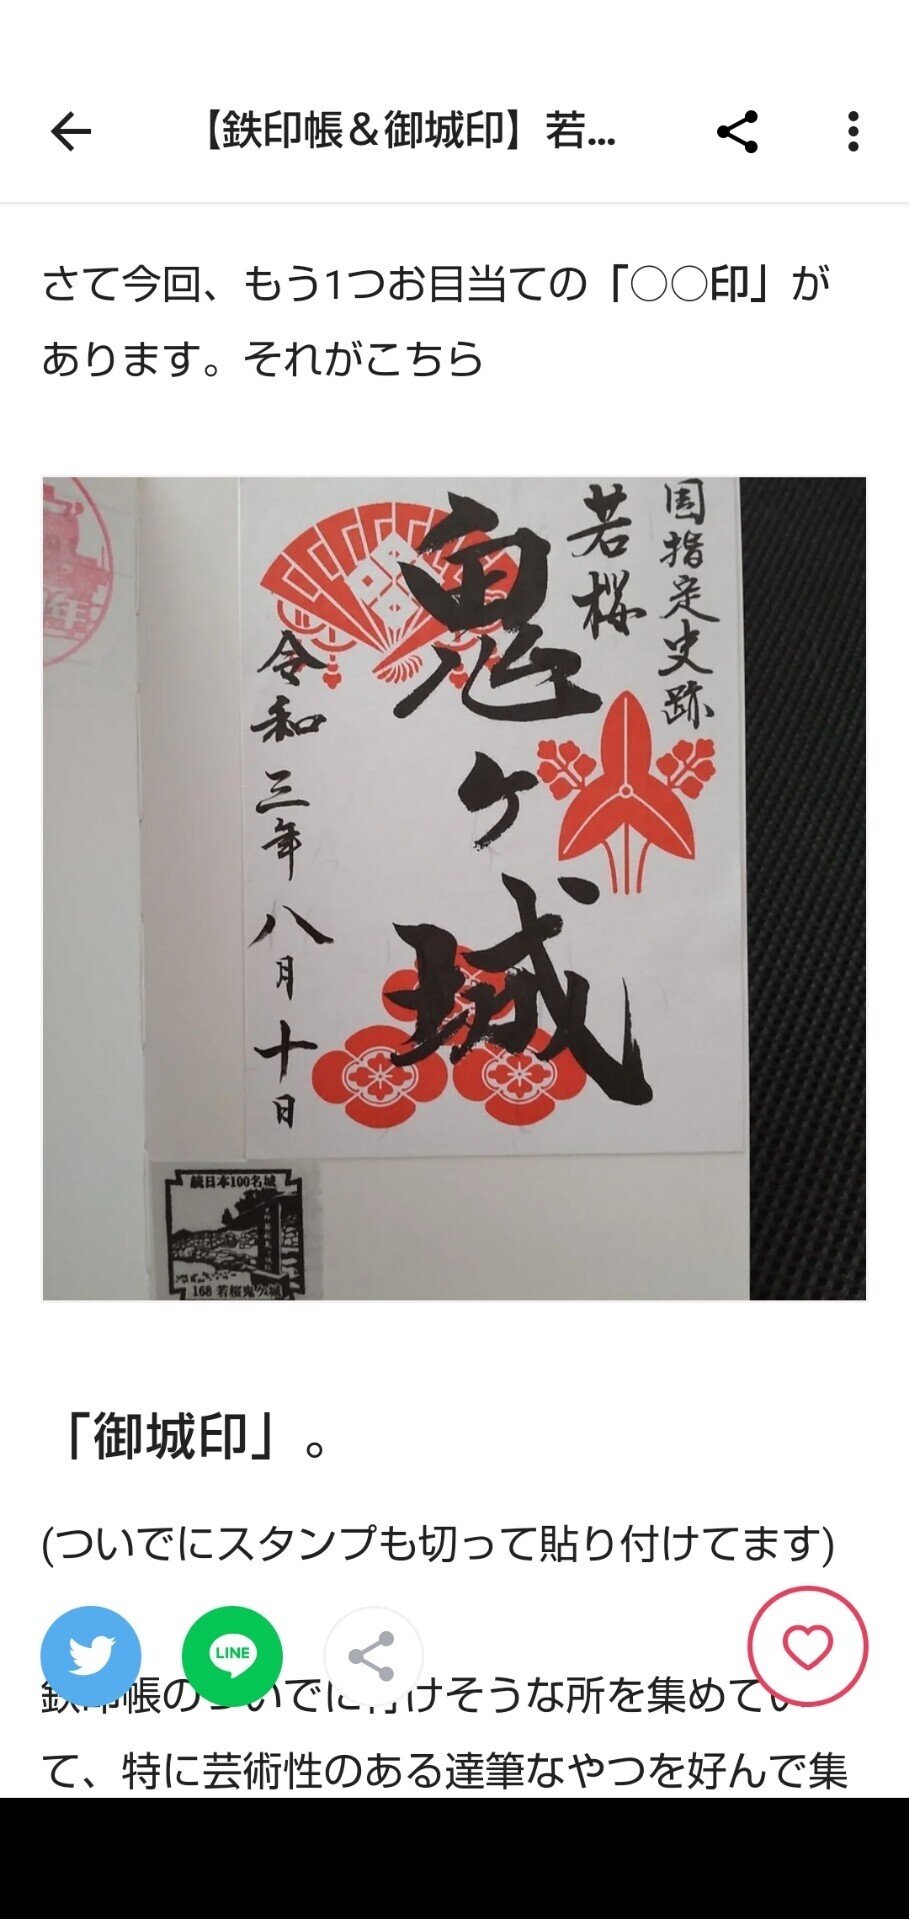 【鉄印帳＆御城印】若...
さて今回、もう1つお目当ての「〇〇印」が
あります。それがこちら
国指定史跡
若桜
鬼ヶ城
令和三年八月十日
続日本100名城
168 若桜鬼ケ城
「御城印」。
(ついでにスタンプも切って貼り付けてます)
LINE
鉄印帳のついでに行けそうな所を集めてい
て、特に芸術性のある達筆なやつを好んで集